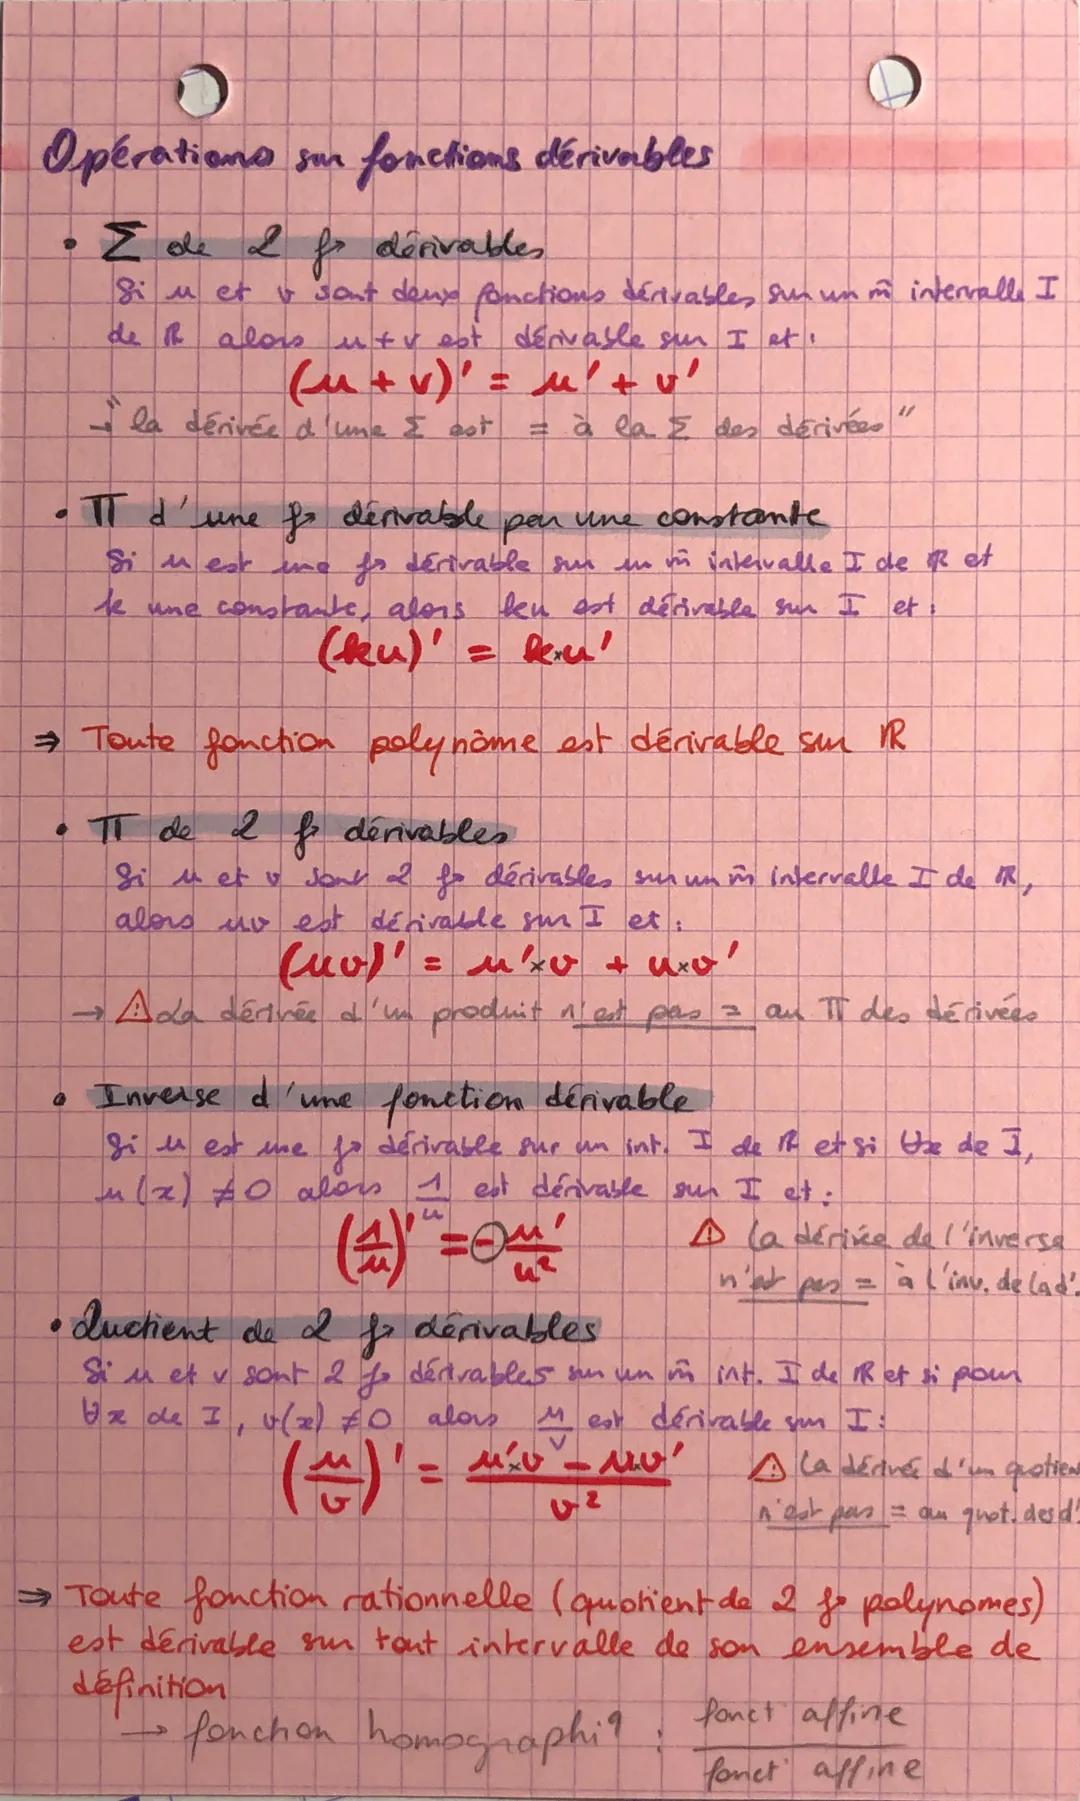 Opérations sur fonctions dérivables
• Σ de 2 f° dérivables
Si u et v sont deux fonctions dérivables sur un m̂ intervalle I
de ℝ alors u+v est dérivable sur I et :
(u + v)' = u' + v'
→ "la dérivée d'une Σ est = à la Σ des dérivées"
• Π d'une f° dérivable par une constante
Si u est une f° dérivable sur un m̂ intervalle I de ℝ et
k une constante, alors ku est dérivable sur I et :
(ku)' = k×u'
⇒ Toute fonction polynôme est dérivable sur ℝ
• Π de 2 f° dérivables
Si u et v sont 2 f° dérivables sur un m̂ intervalle I de ℝ,
alors uv est dérivable sur I et :
(uv)' = u'×v + u×v'
→ ⚠ La dérivée d'un produit n'est pas = au Π des dérivées
• Inverse d'une fonction dérivable
Si u est une f° dérivable sur un int. I de ℝ et si ∀x de I,
u(x) ≠ 0 alors 1/u est dérivable sur I et :
(1/u)' = - u'/u²
⚠ la dérivée de l'inverse
n'est pas = à l'inv. de la d'.
• Quotient de 2 f° dérivables
Si u et v sont 2 f° dérivables sur un m̂ int. I de ℝ et si pour
∀x de I, v(x) ≠ 0 alors u/v est dérivable sur I :
(u/v)' = (u'×v - u×v')/v²
⚠ la dérivée d'un quotien
n'est pas = au quot. des d'
⇒ Toute fonction rationnelle (quotient de 2 f° polynomes)
est dérivable sur tout intervalle de son ensemble de
définition
→ fonction homographiq :
fonct° affine
fonct° affine